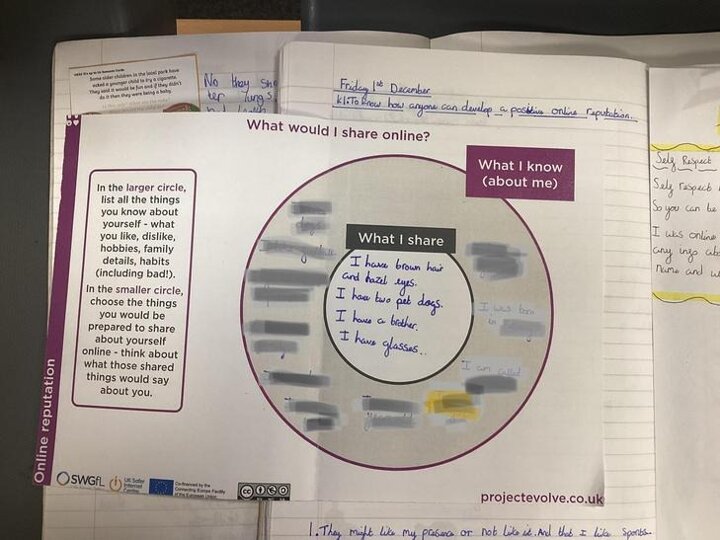 Some older children in the local park have
asked a younger child to try a cigarette.
They said it would be fun and if they didn't
do it then they were being a baby.
No they
Friday 1st December
L.I: To know how anyone can develop a positive online reputation.
What would I share online?
In the larger circle,
list all the things
you know about
yourself - what
you like, dislike,
hobbies, family
details, habits
(including bad!).
In the smaller circle,
choose the things
you would be
prepared to share
about yourself
online - think about
what those shared
things would say
about you.
What I know
(about me)
What I share
I have brown hair
and hazel eyes.
I have two pet dogs.
I have a brother.
I have glasses..
I was born
in
I am called
Online reputation
SWGfL
UK Safer
Internet
Centre
Co-financed by the
Connecting Europe Facility
of the European Union
cc
projectevolve.co.uk
Self Respect
Self respect
So you can be
I was online
any info
name and
1. They might like my presence or not like it. And that I like Sports.